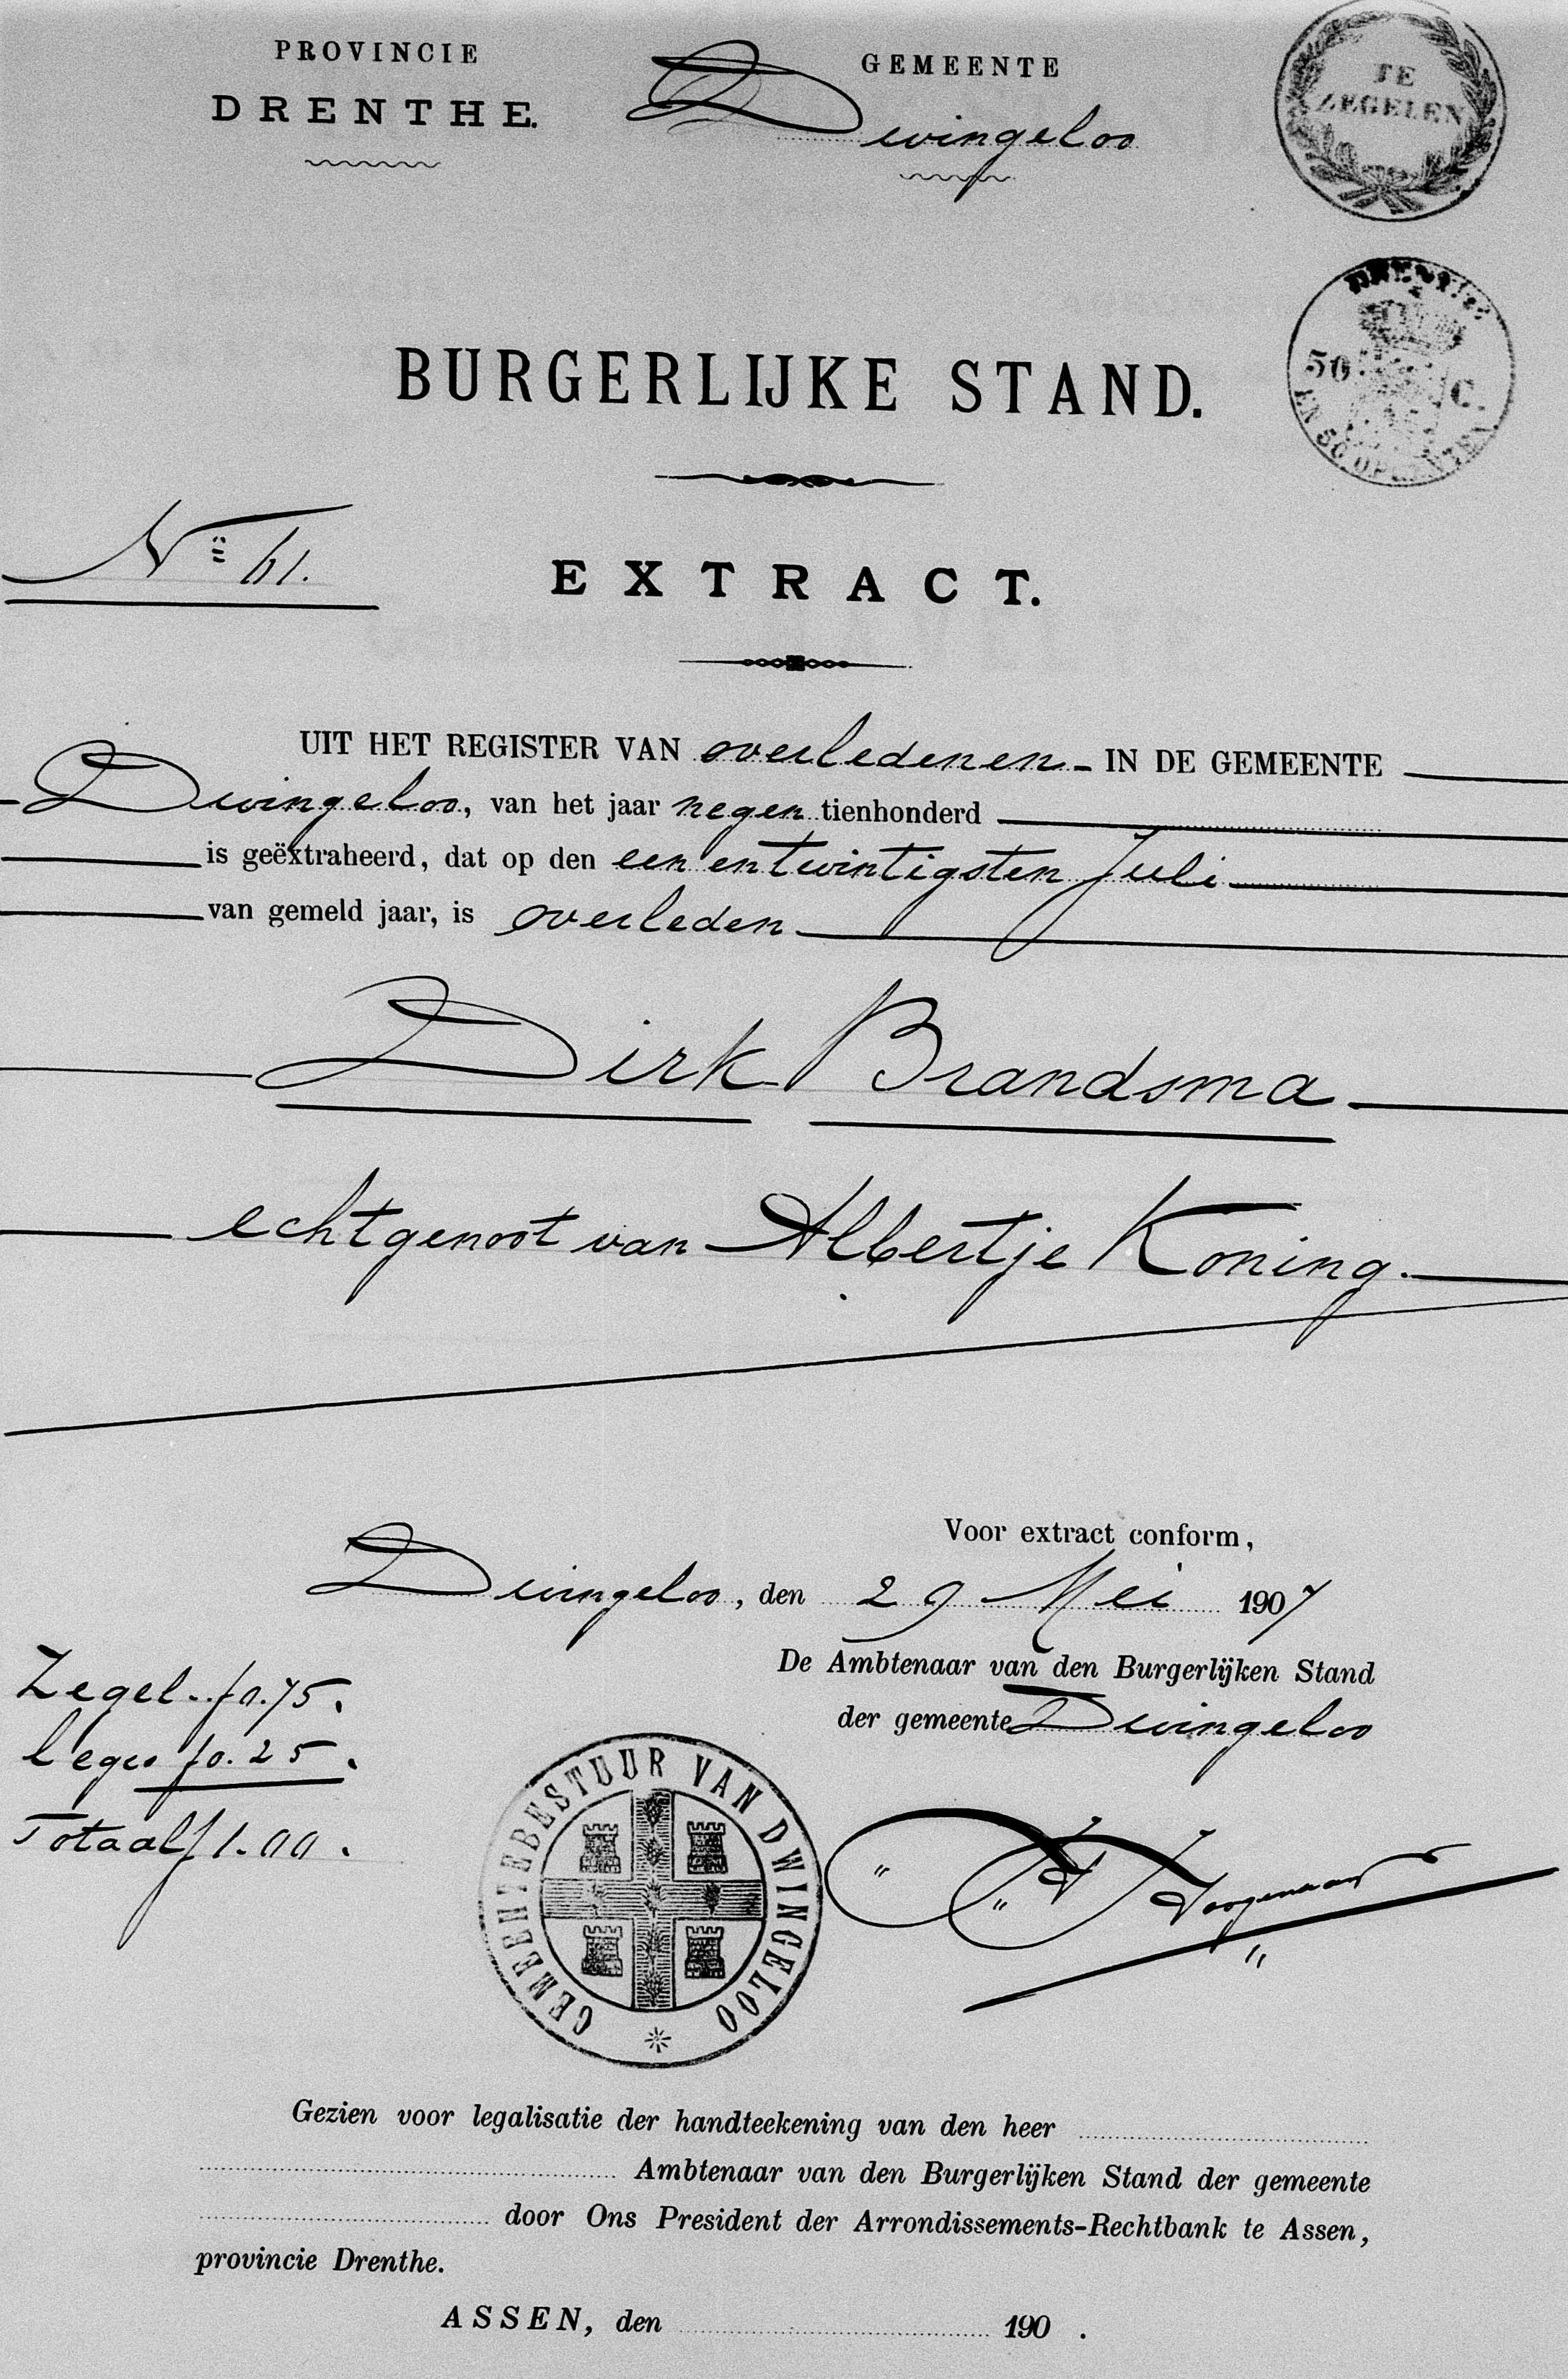 PROVINCIE
DRENTHE.
GEMEENTE
Dwingeloo
TE
ZEGELEN
50 C.
BURGERLIJKE STAND.
No 61.
EXTRACT.
UIT HET REGISTER VAN overledenen - IN DE GEMEENTE
Dwingeloo, van het jaar negen tienhonderd
is geëxtraheerd, dat op den een en twintigsten Juli
van gemeld jaar, is overleden
Dirk Brandsma
echtgenoot van Albertje Koning.
Voor extract conform,
Dwingeloo, den 29 Mei 1907
De Ambtenaar van den Burgerlijken Stand
der gemeente Dwingeloo
Zegel.. f0.75.
leges f0.25.
Totaal f1.00.
GEMEENTEBESTUUR VAN DWINGELOO
Gezien voor legalisatie der handteekening van den heer
Ambtenaar van den Burgerlijken Stand der gemeente
door Ons President der Arrondissements-Rechtbank te Assen,
provincie Drenthe.
ASSEN, den 190 .